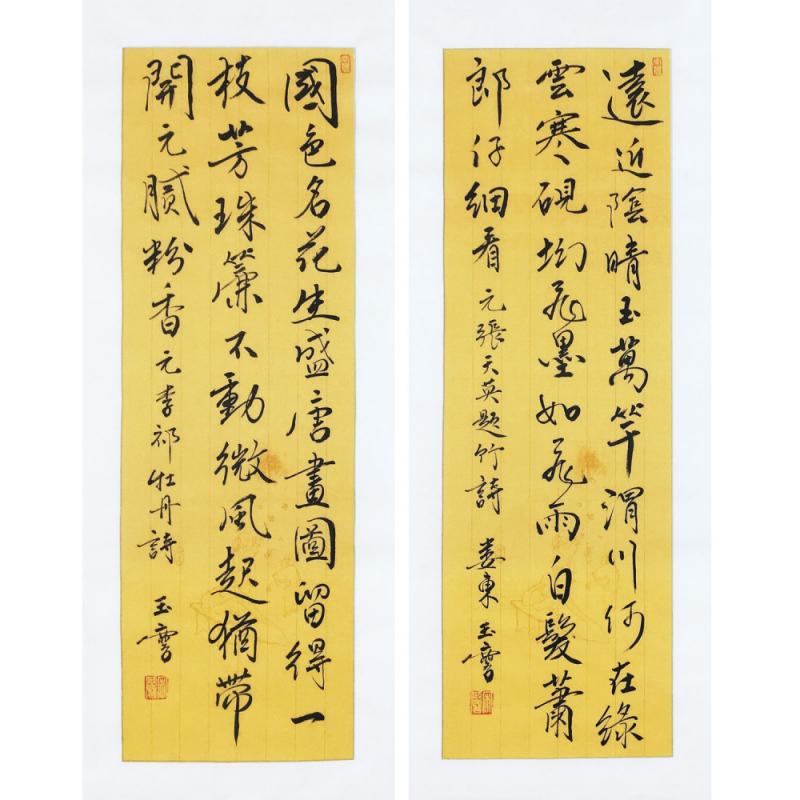 遠近陰晴玉萬竿渭川何在綠
雲寒硯坳飛墨如飛雨白髮蕭
郎仔細看 元張天英題竹詩 婁東玉
國色名花生盛唐畫圖留得一
枝芳珠簾不動微風起猶帶
開元膩粉香 元李祁牡丹詩 玉